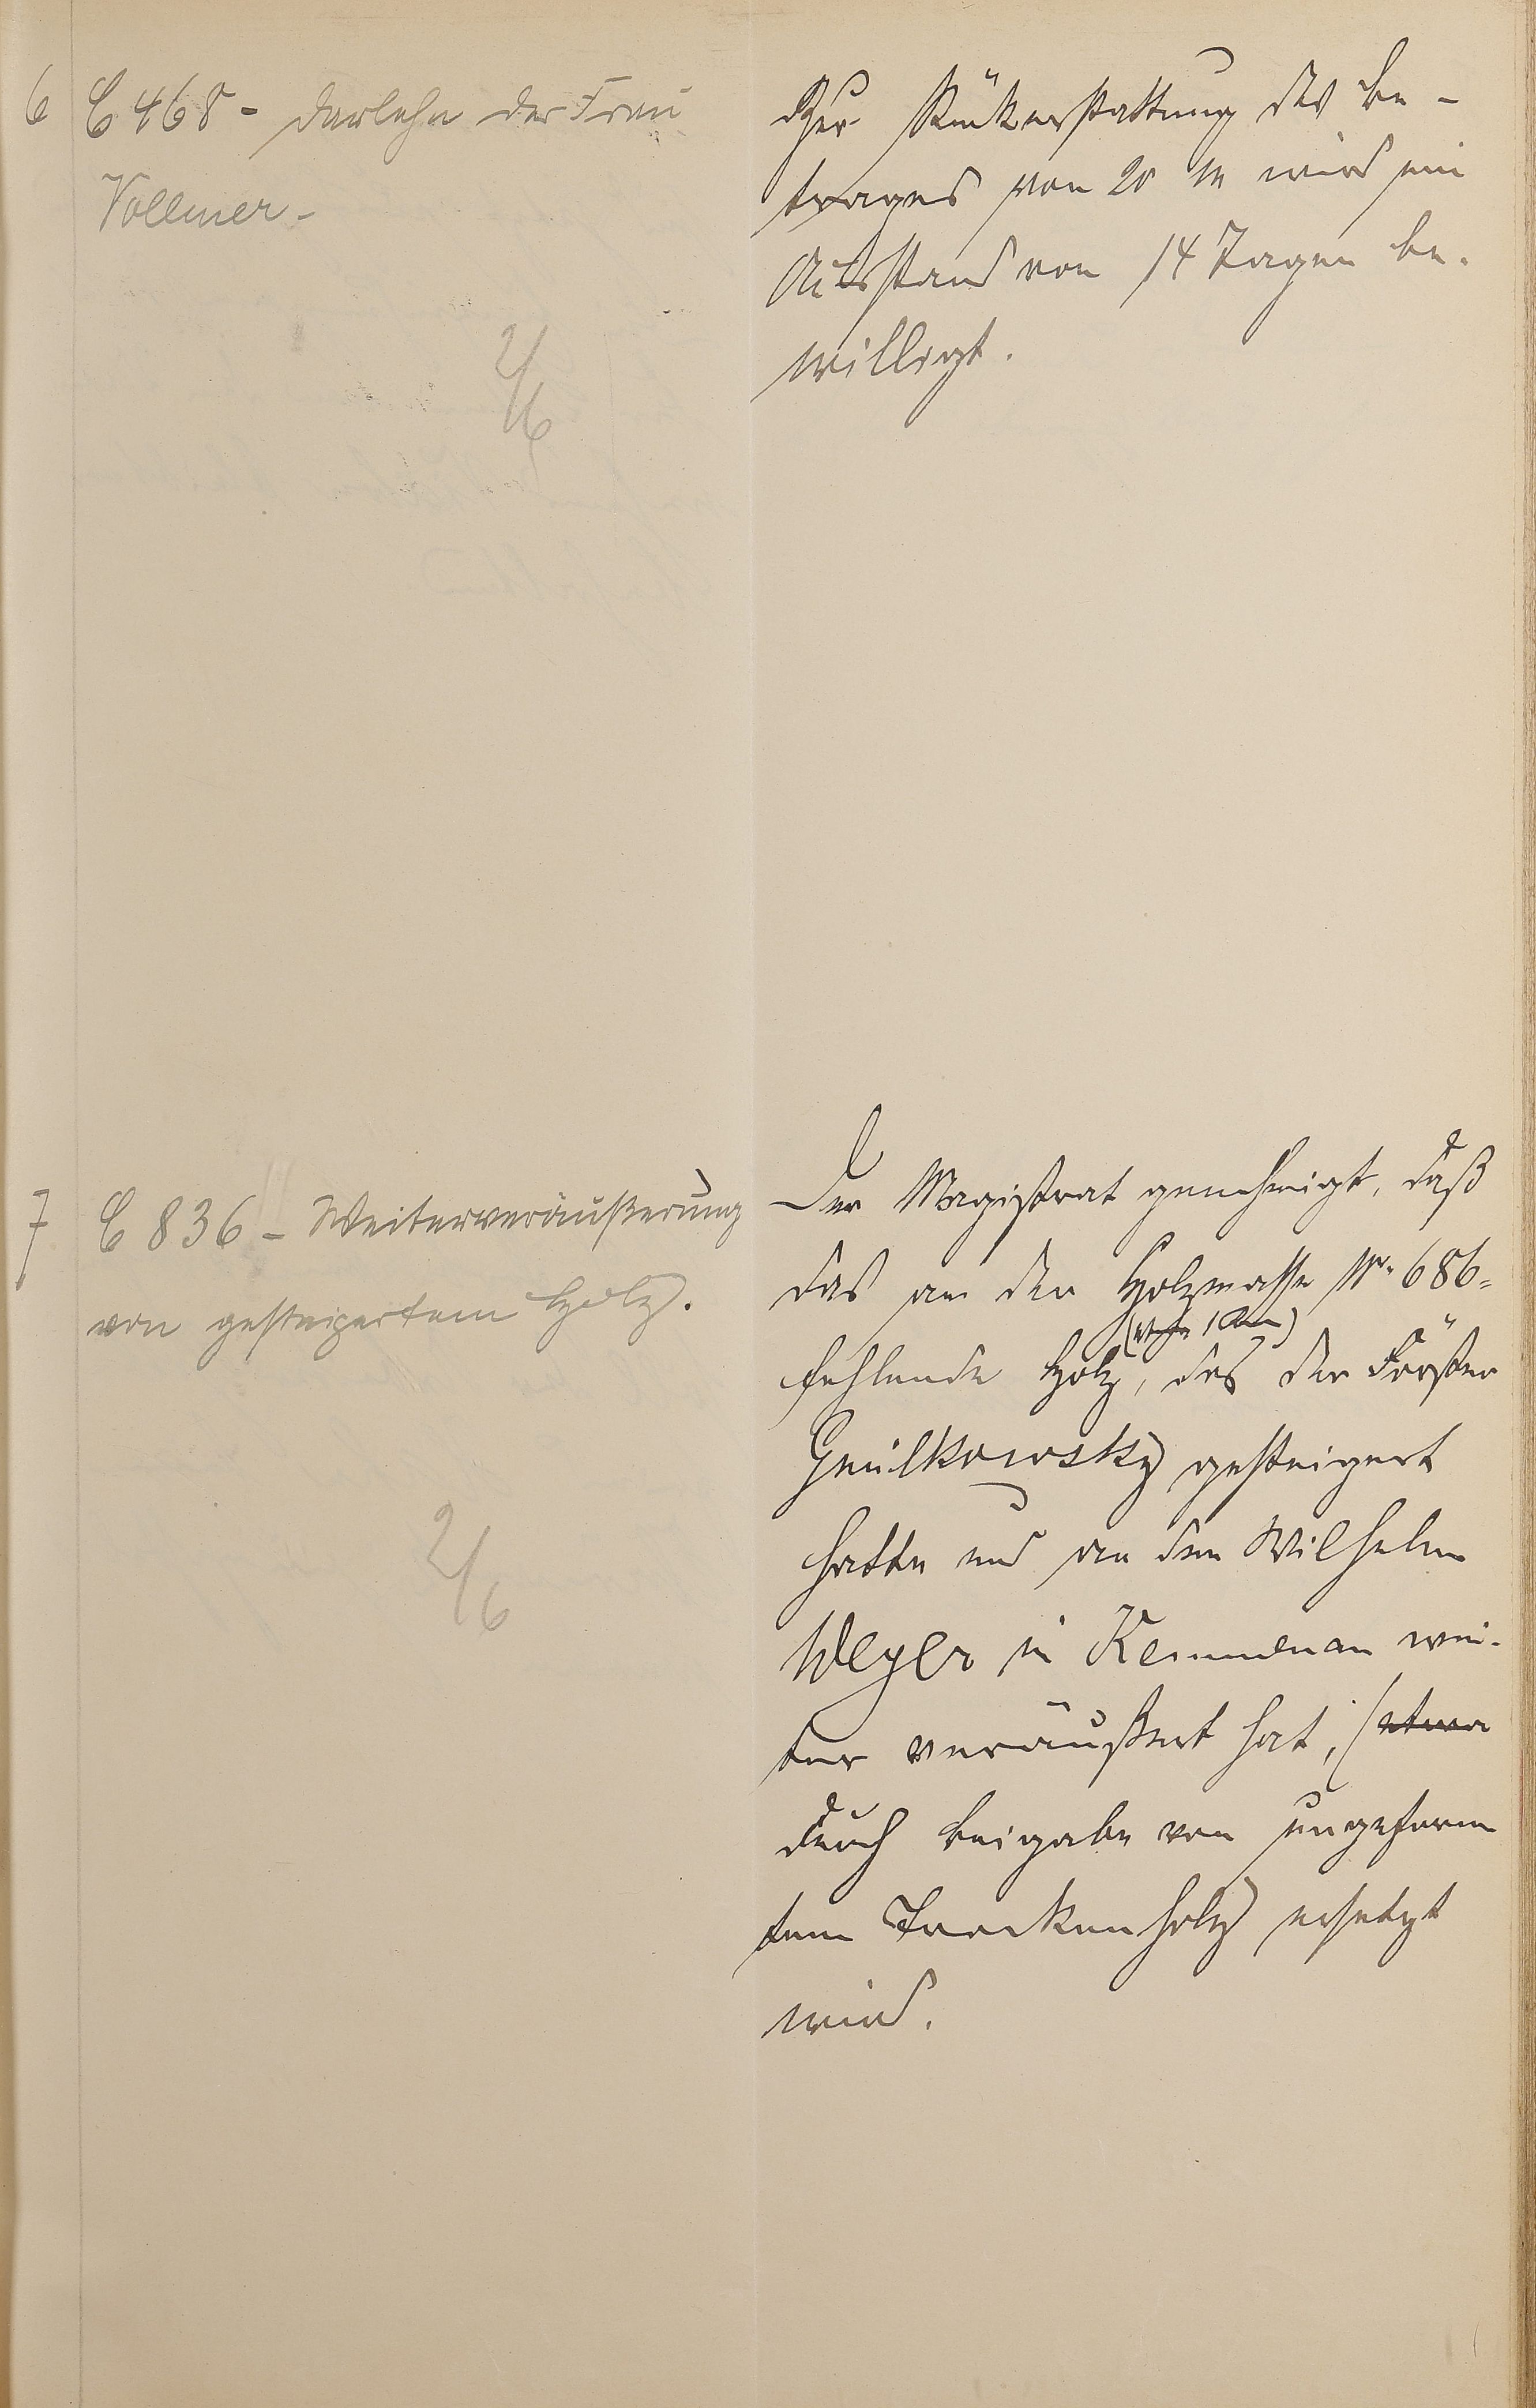 6 C 468 - Darlehn der Frau
Vollmer -
2/6
Zur Rückerstattung des Be-
trages von 20 M wird ein
Ausstand von 14 Tagen be-
willigt.
7 C 836 - Weiterveräußerung
von gesteigertem Holz.
2/6
Der Magistrat genehmigt, daß
das an der Holzmasse Nr. 686
fehlende Holz, das der Förster
Gniilkowsky gesteigert
hatte und an den Wilhelm
Weyer in Kemmenau wei-
ter veräußert hat, (etwa
durch Beigabe von ungeform
tem Trockenholz) ersetzt
wird.